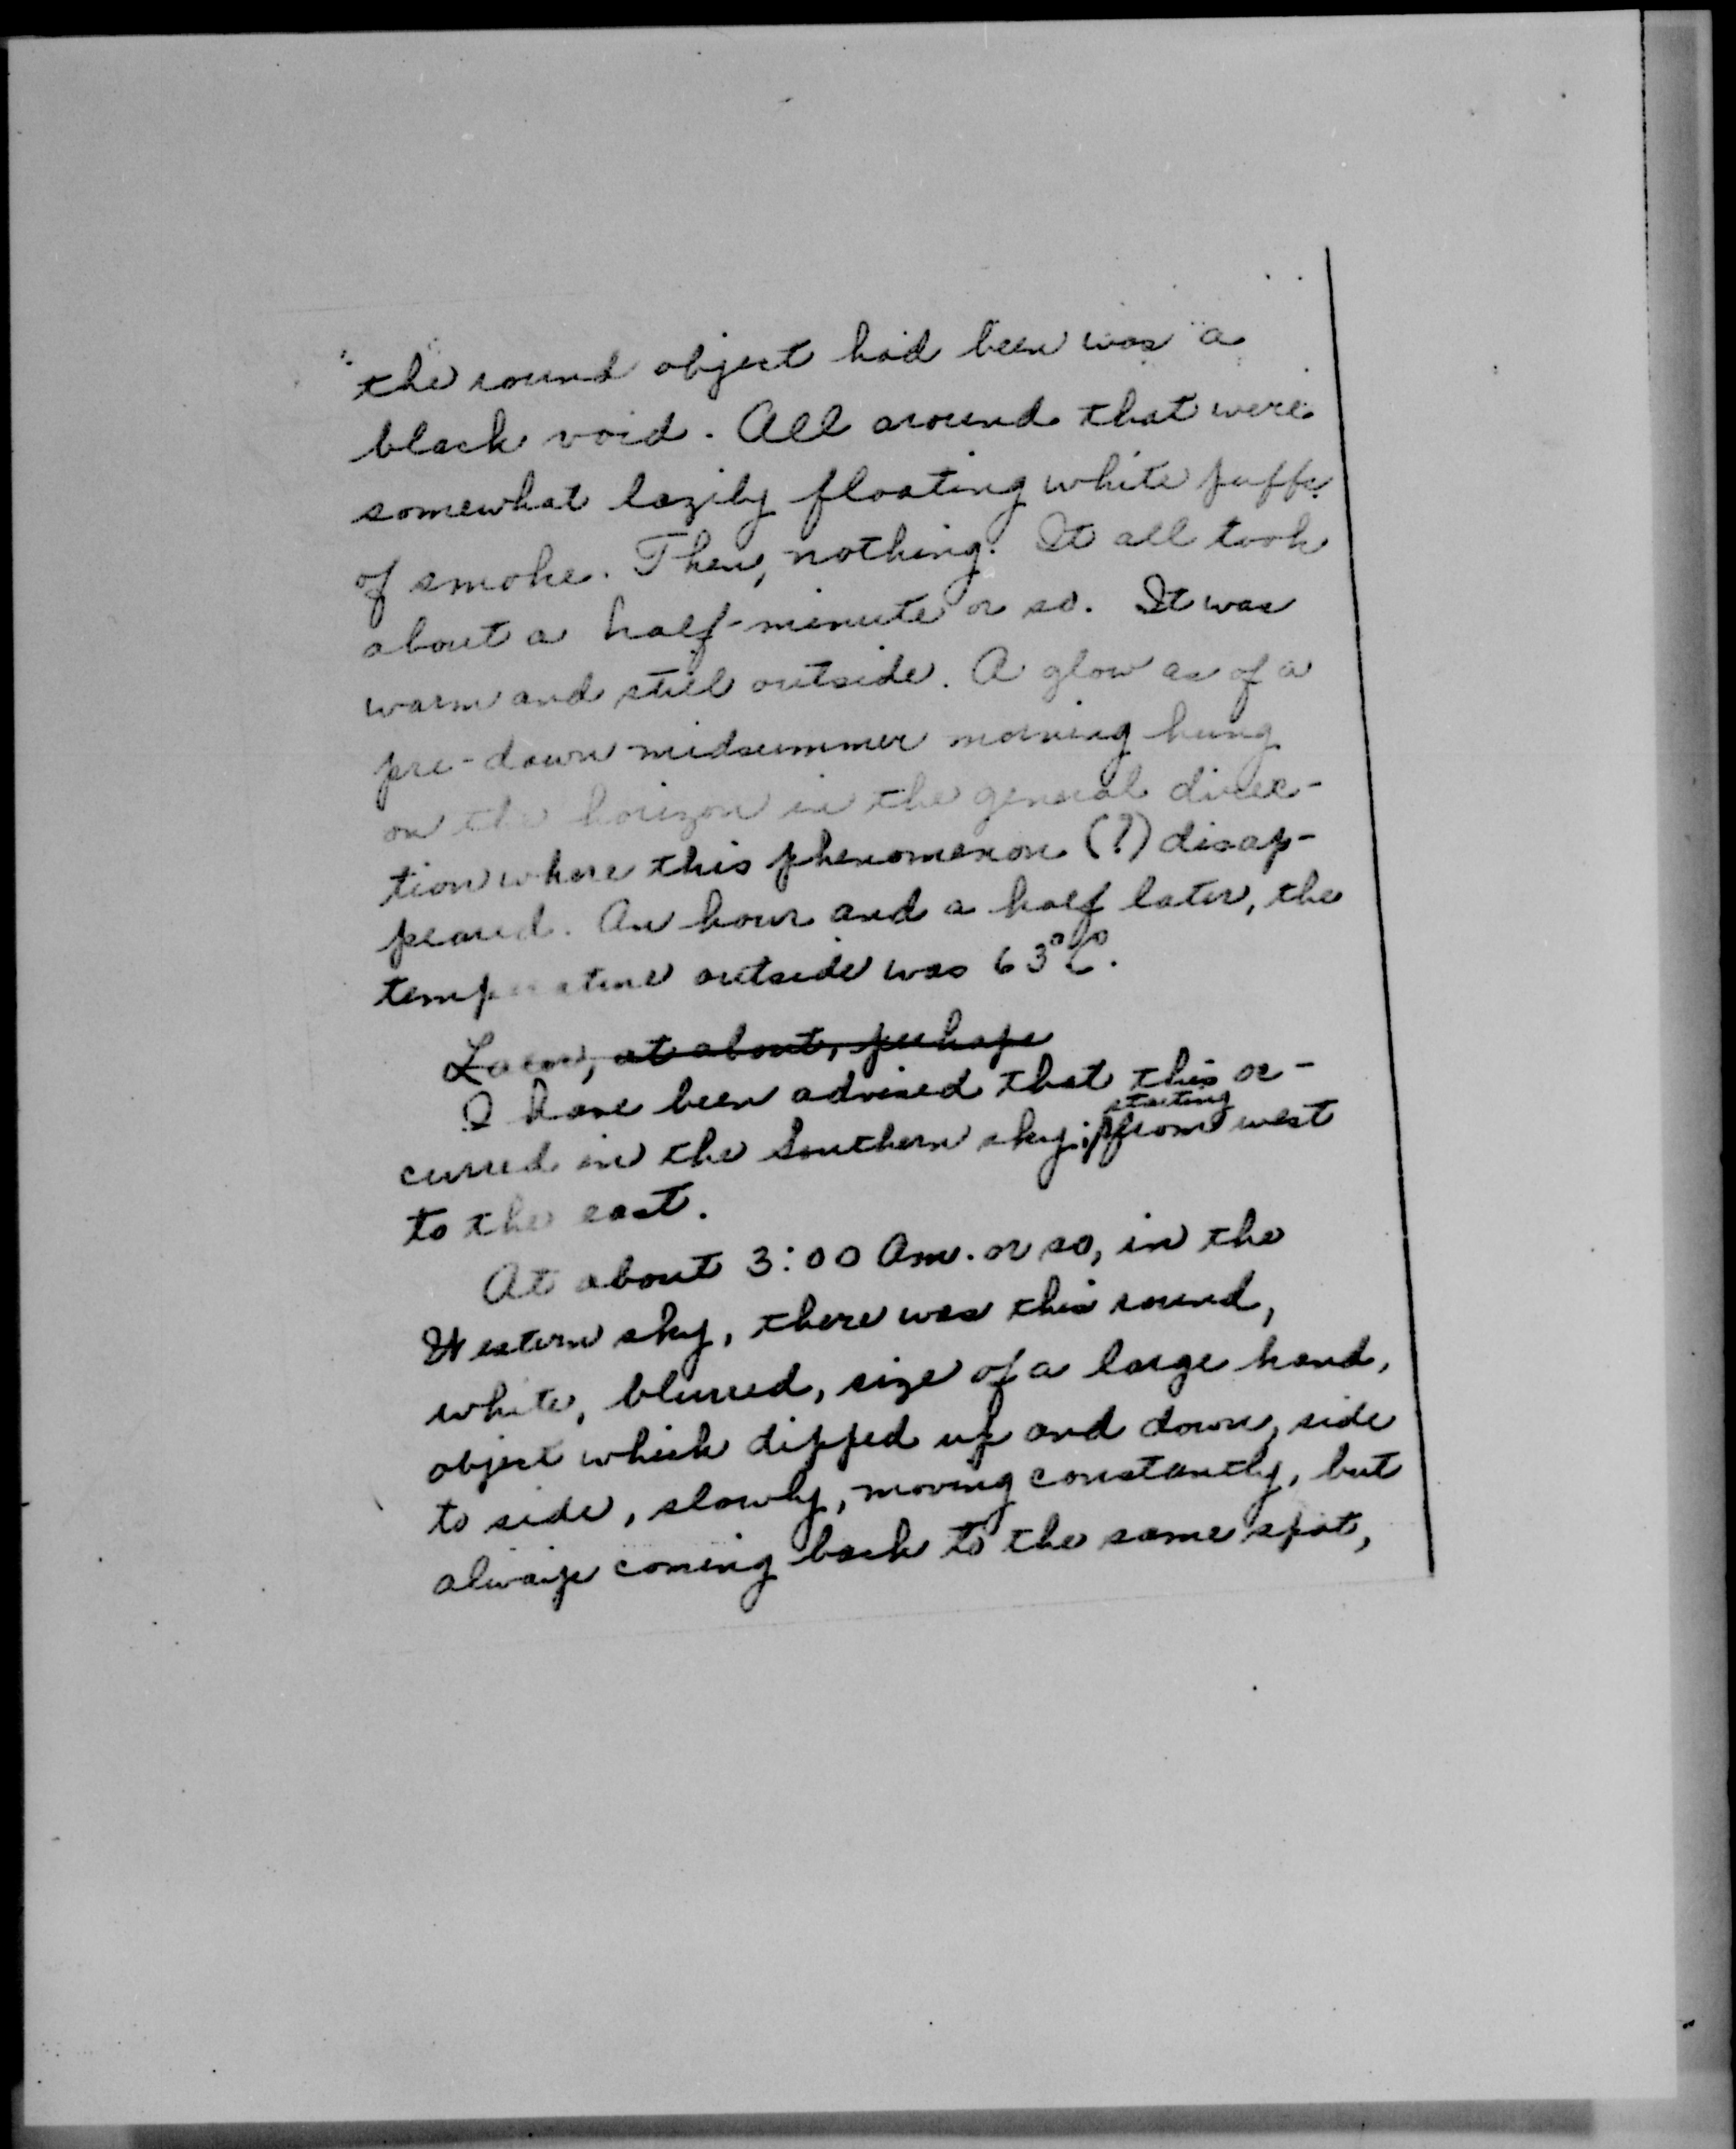 the round object had been was a
black void. All around that were
somewhat lazily floating white puffs
of smoke. Then, nothing. It all took
about a half-minute or so. It was
warm and still outside. A glow as of a
pre-dawn midsummer morning hung
on the horizon in the general direc-
tion where this phenomenon (?) disap-
peared. An hour and a half later, the
temperature outside was 63°
at about, perhaps
I have been advised that this oc-
curred in the Southern sky; starting from west
to the east.
At about 3:00 Am. or so, in the
Western sky, there was this round,
white, blurred, size of a large hand,
object which dipped up and down, side
to side, slowly, moving constantly, but
always coming back to the same spot,